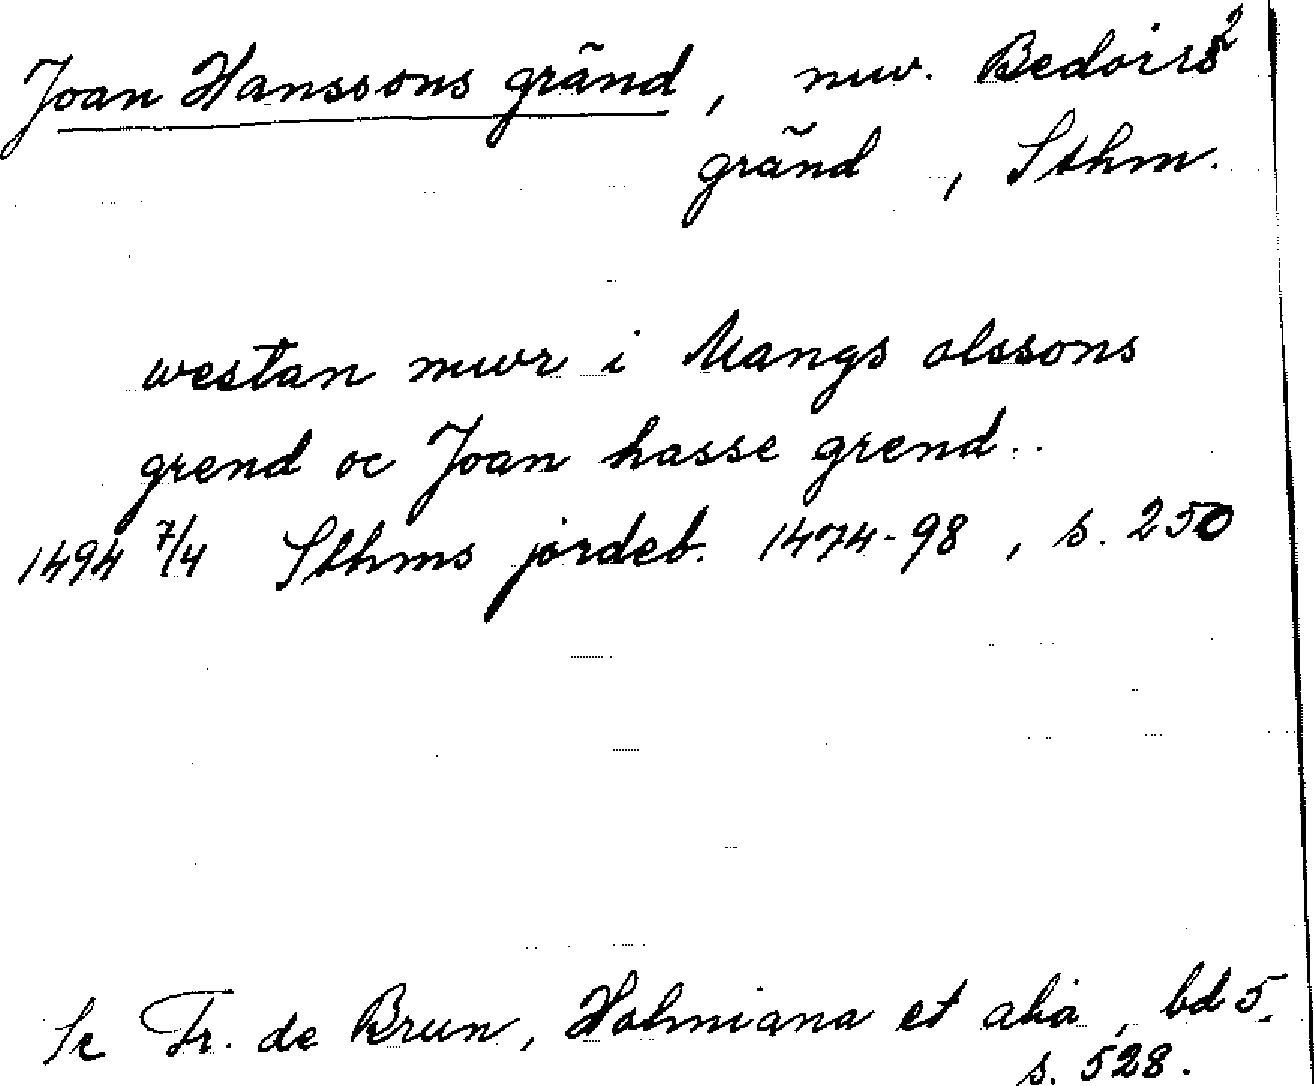 Joan Hanssons gränd, nuv. Bedoirs 2
gränd, Sthm.
westan mwr i Mangs olssons
grend oc Joan hasse grend..
1494 7/4 Sthms jordeb. 1474-98, s. 250
Se Fr. de Brun, Holmiana et alia, bd 5.
s. 528.